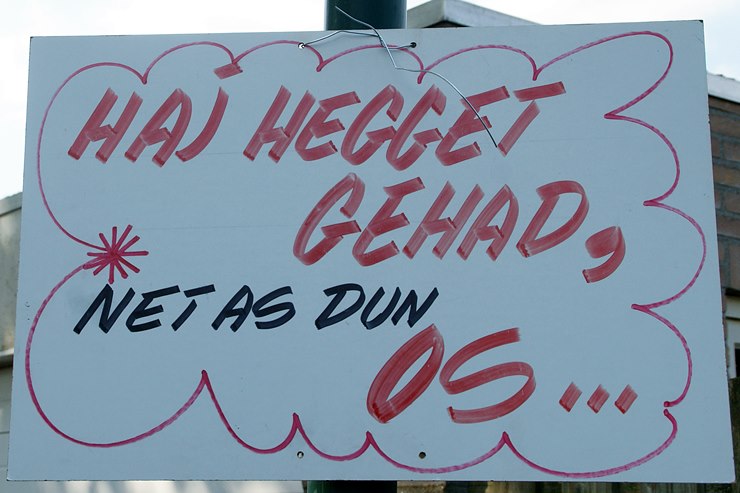 HAJ HEGGET
GEHAD,
NET AS DUN
OS...